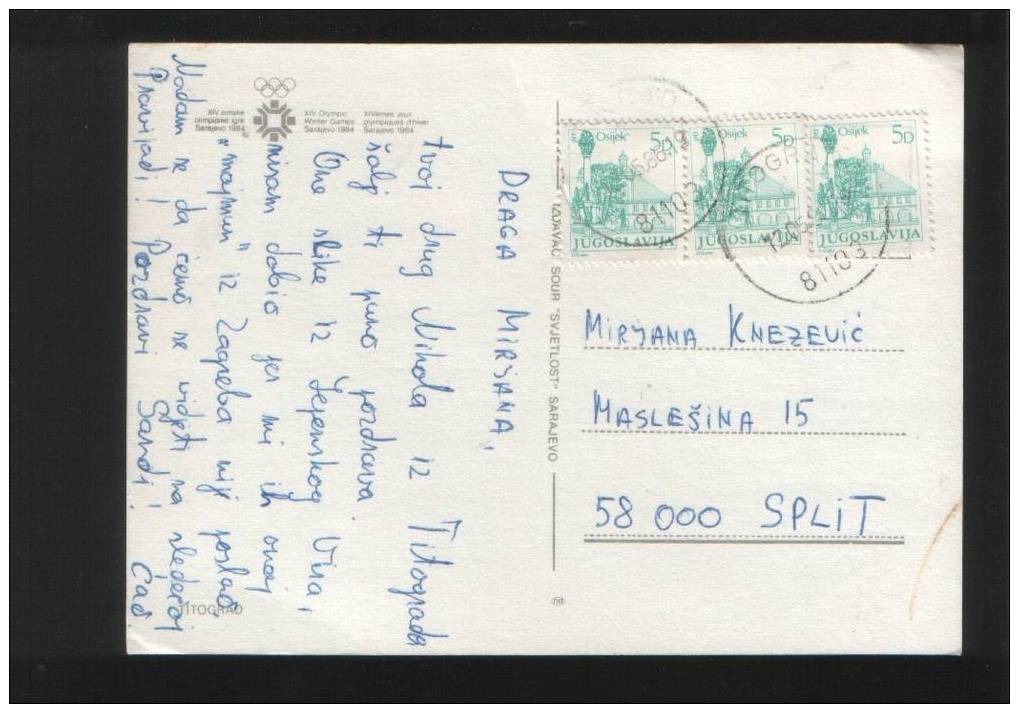 XIV zimske
olimpijske igre
Sarajevo 1984
XIV Olympic
Winter Games
Sarajevo 1984
XIVèmes jeux
olympiques d'hiver
Sarajevo 1984
DRAGA MIRJANA,
tvoj drug Nikola iz Titograda
šalje ti puno pozdrava.
One slike iz Lepenskog Vira,
nisam dobio jer mi ih onaj
"majmun" iz Zagreba nije poslao,
Nadam se da ćemo se vidjeti na sledećoj
Pravijadi! Pozdravi Sandi! Ćao
TITOGRAD
IZDAVAČ: SOUR "SVJETLOST" SARAJEVO
Osijek 5D
JUGOSLAVIJA
Osijek 5D
JUGOSLAVIJA
Osijek 5D
JUGOSLAVIJA
81103
81103
MIRJANA KNEZEVIĆ
MASLEŠINA 15
58 000 SPLIT